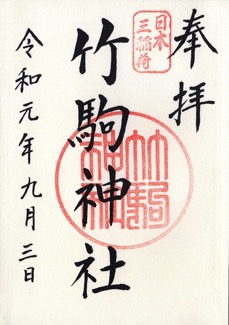 奉拝
日本
三稲荷
竹駒神社
竹駒
神社
令和元年九月三日